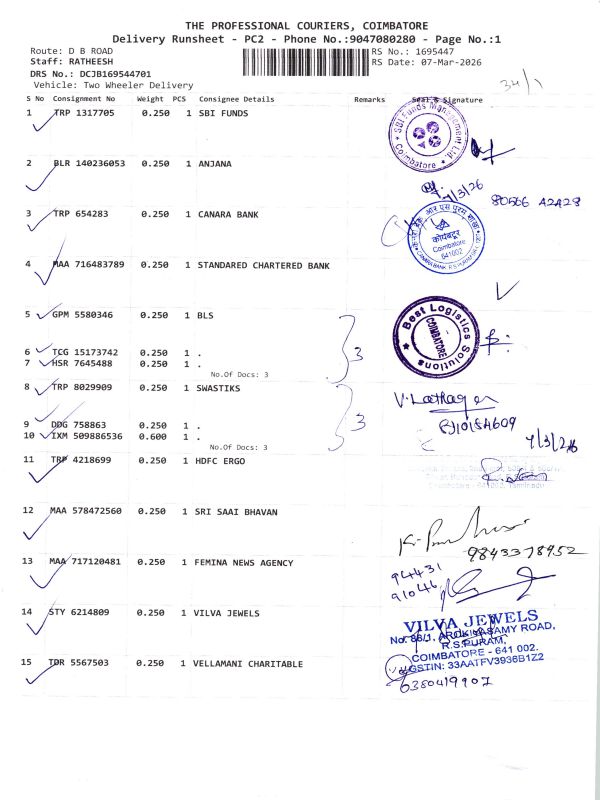 THE PROFESSIONAL COURIERS, COIMBATORE
Delivery Runsheet - PC2 - Phone No.:9047080280 - Page No.:1
Route: D B ROAD RS No.: 1695447
Staff: RATHEESH RS Date: 07-Mar-2026
DRS No.: DCJB169544701
Vehicle: Two Wheeler Delivery
34/1
S No Consignment No Weight PCS Consignee Details Remarks Seal & Signature
1 TRP 1317705 0.250 1 SBI FUNDS
SBI Funds Management Ltd
Coimbatore
2 BLR 140236053 0.250 1 ANJANA
7/3/26
80566 A2A28
3 TRP 654283 0.250 1 CANARA BANK
कोयंबटूर
Coimbatore
641002
CANARA BANK R.S.PURAM
4 MAA 716483789 0.250 1 STANDARED CHARTERED BANK
5 GPM 5580346 0.250 1 BLS
Best Logistics Solutions
COIMBATORE
6 TCG 15173742 0.250 1 .
7 HSR 7645488 0.250 1 .
3
No.Of Docs: 3
8 TRP 8029909 0.250 1 SWASTIKS
9 DDG 758863 0.250 1 .
3
10 IXM 509886536 0.600 1 .
7/3/26
No.Of Docs: 3
11 TRP 4218699 0.250 1 HDFC ERGO
12 MAA 578472560 0.250 1 SRI SAAI BHAVAN
9843378952
13 MAA 717120481 0.250 1 FEMINA NEWS AGENCY
94431
91046
14 STY 6214809 0.250 1 VILVA JEWELS
VILVA JEWELS
No. 86/1, AROKIASAMY ROAD,
R.S.PURAM,
COIMBATORE - 641 002.
GSTIN: 33AATFV3936B1Z2
15 TDR 5567503 0.250 1 VELLAMANI CHARITABLE
6380419907